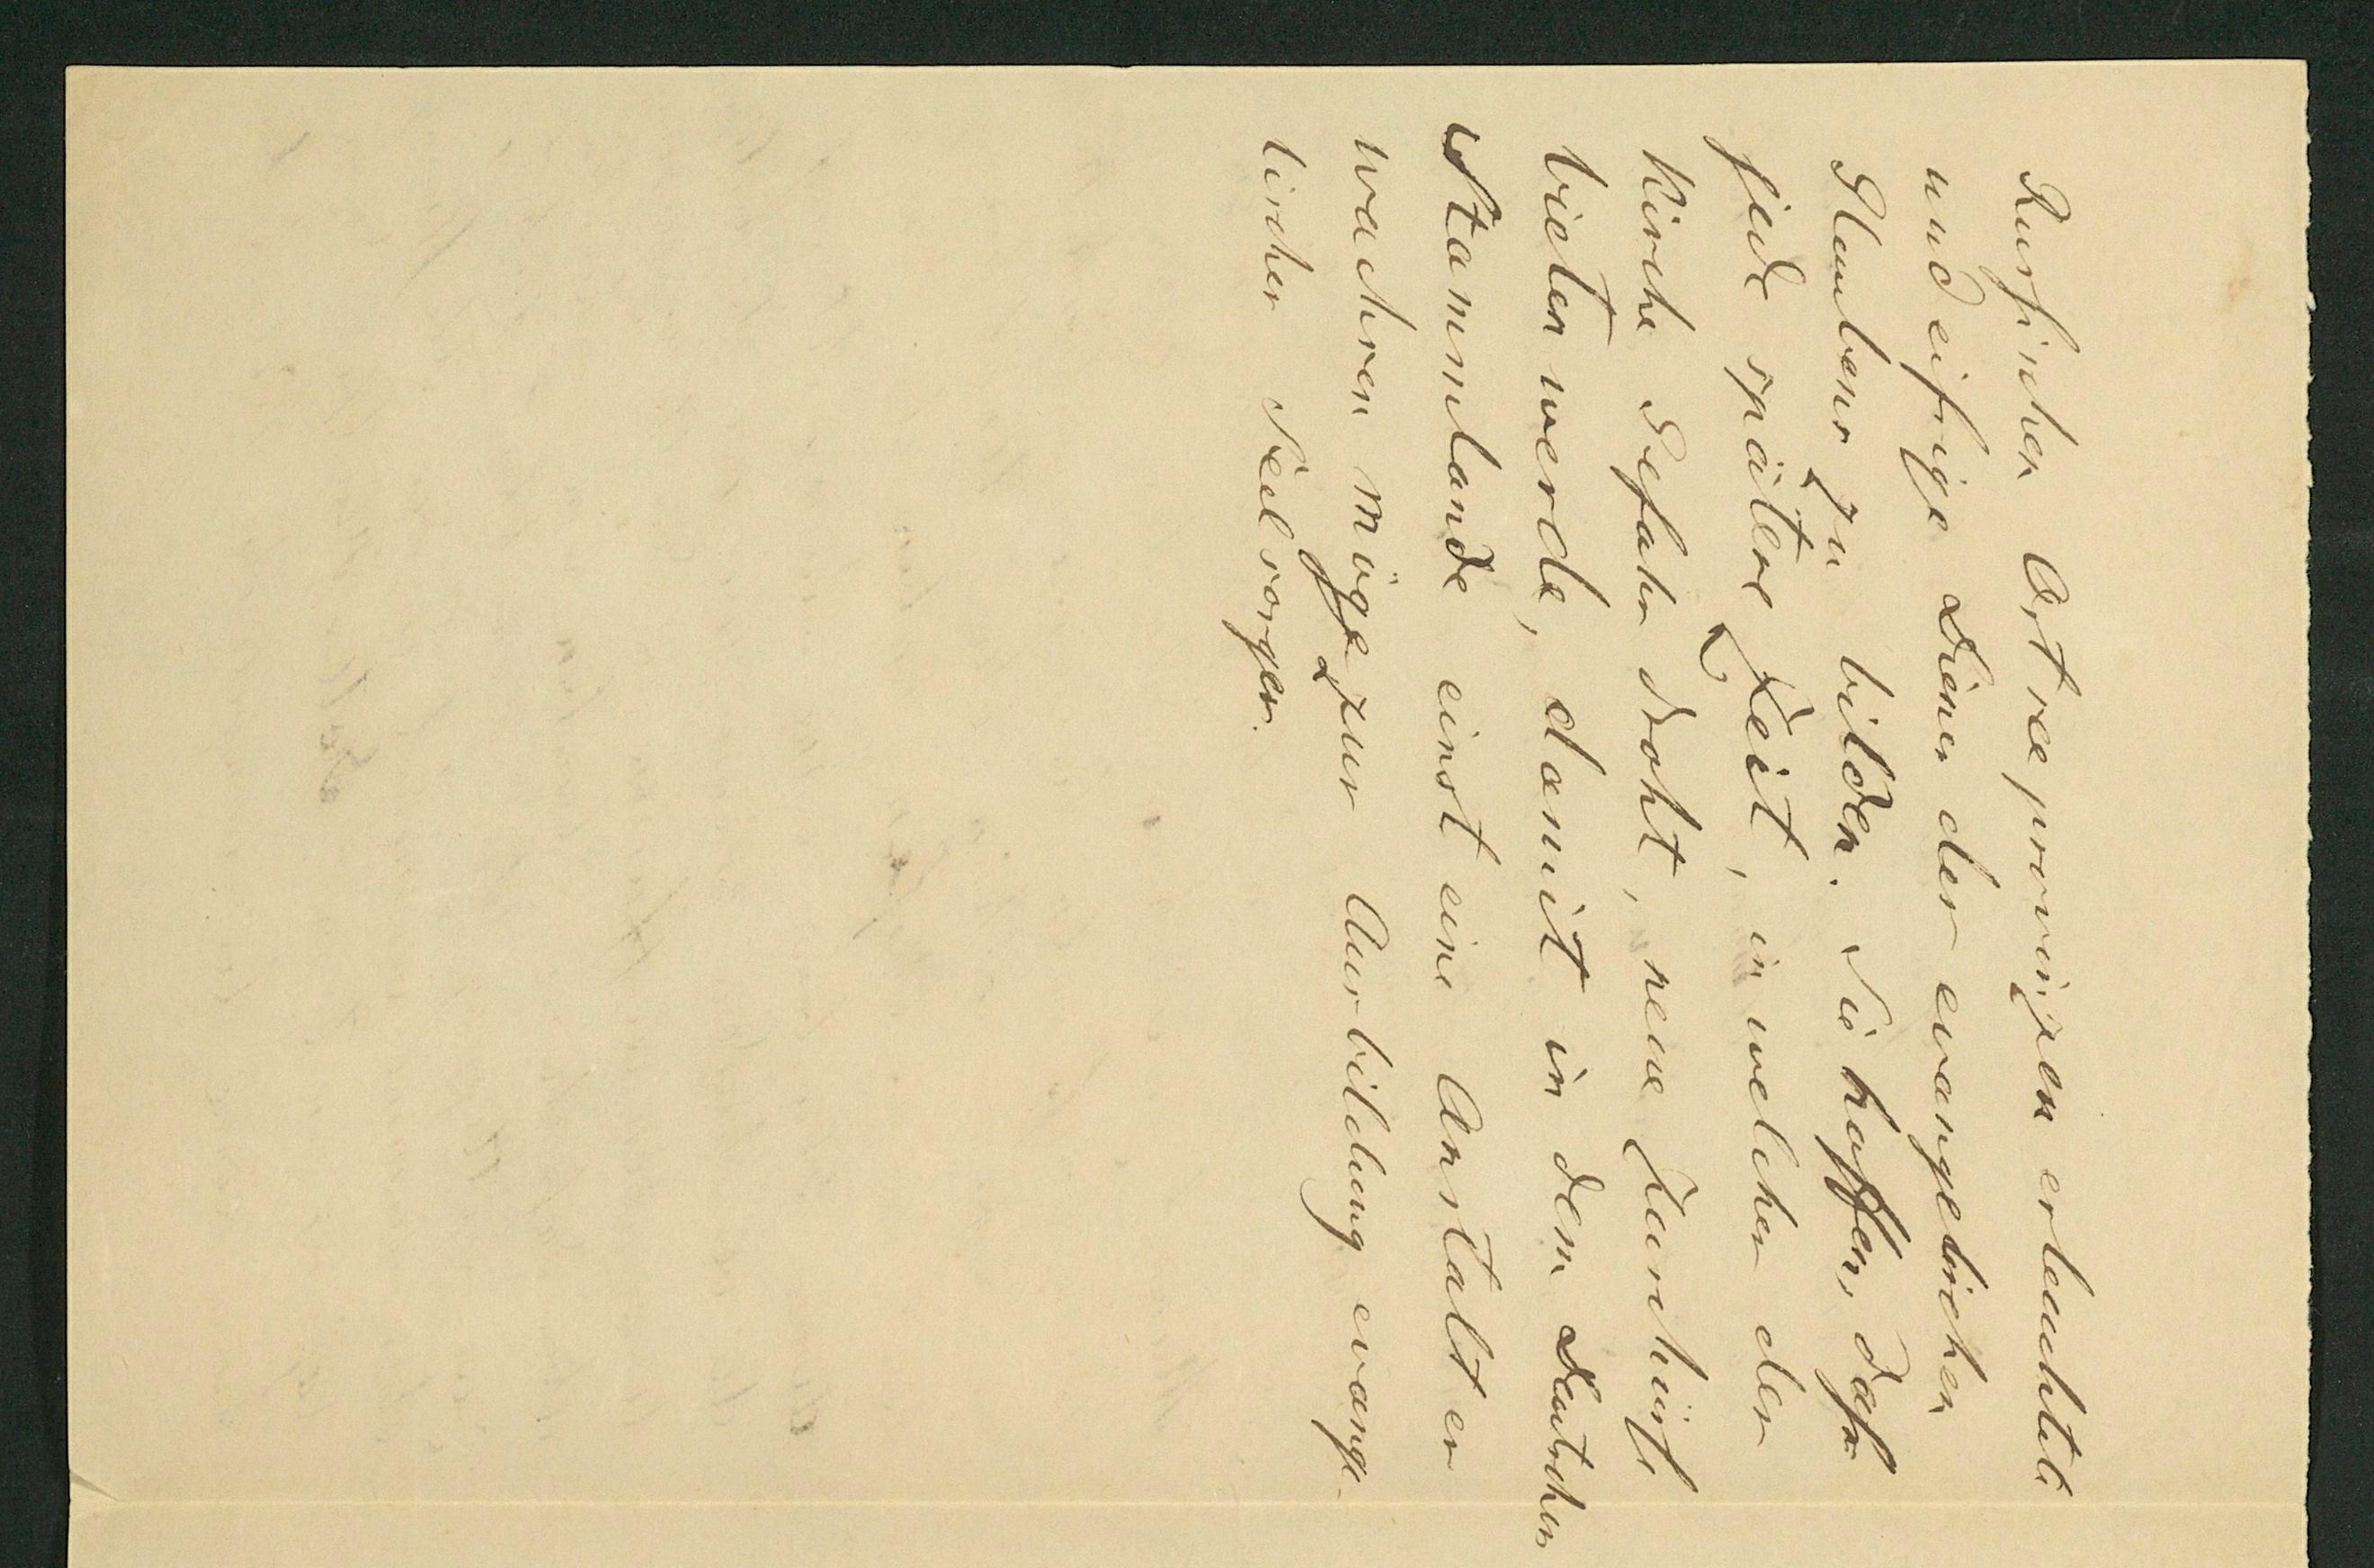 Russischen Ostseeprovinzen erleuchtete
und eifrige Diener der evangelischen
Glaubens zu bilden. Sie hoffen, daß
jede spätere Zeit, in welcher der
Kirche Gefahr droht, neue Zuversicht
bieten werde, damit in dem Deutschen
Stammlande einst eine Anstalt er
wachsen möge zur Ausbildung evange-
lischer Seelsorger.